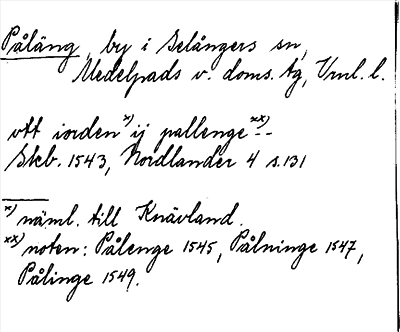 Påläng, by i Selångers sn,
Medelpads v. doms. tg, Vrnl. l.
vtt iorden x) ij pallenge xx) --
Skb. 1543, Nordlander 4 s. 131
x) näml. till Knävland.
xx) noten: Pålenge 1545, Pålninge 1547,
Pålinge 1549.